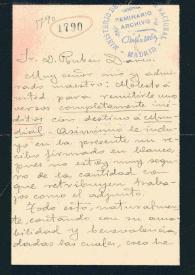 1790
1790
MINISTERIO DE
SEMINARIO
ARCHIVO
MADRID
Sr. D. Rubén Darío.
Muy señor mío y admi-
rado maestro: Molesto a
usted para remitirle unos
versos completamente iné-
ditos con destino a
Asimismo le inclu-
yo en la presente un re-
cibo firmado en blanco,
pues no estoy muy segu-
ro de la cantidad con
que retribuyen traba-
jos como el adjunto.
Todo esto, naturalmen-
te, contando con su ama-
bilidad y benevolencia,
dadas las cuales, creo ha-